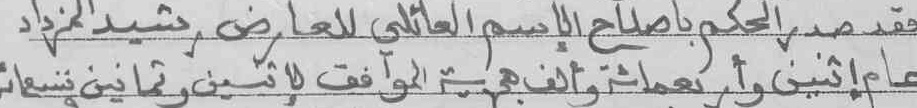 فقد صدر الحكم بإصلاح الإسم العائلي للعارض رشيد المزداد
عام إثنين وأربعمائة وألف هجرية الموافق لإثنين وثمانين وتسعمائة